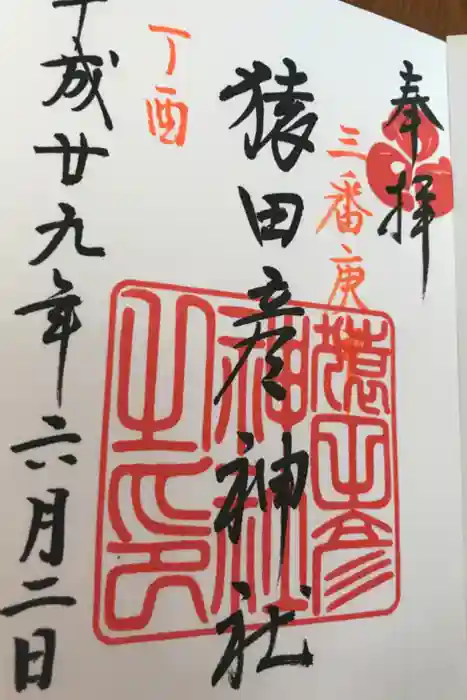 奉拝
三番庚申
猿田彦神社
丁酉
平成廿九年六月二日
猿田彦
神社
之印